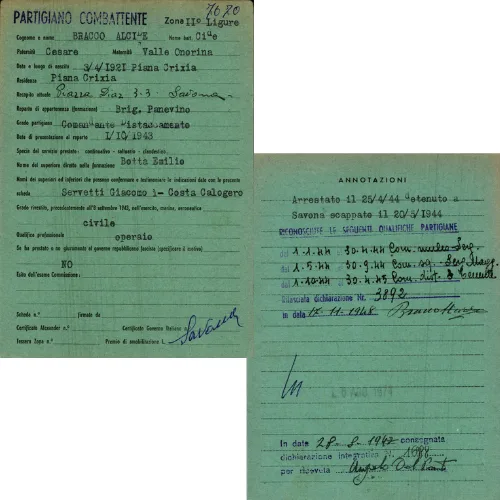 7670
PARTIGIANO COMBATTENTE Zona IIº Ligure
Cognome e nome BRACCO ALCIDE Nome batt. Cide
Paternità Cesare Maternità Valle Onorina
Data e luogo di nascita 3/4/1921 Piana Crixia
Residenza Piana Crixia
Recapito attuale Piazza Diaz 3-3 Savona
Reparto di appartenenza (formazione) Brig. Panevino
Grado partigiano Comandante Distaccamento
Data di presentazione al reparto 1/10/1943
Specie del servizio prestato: continuativo - saltuario - clandestino.
Nome del superiore diretto nella formazione Botta Emilio
Nomi dei superiori ed inferiori che possono confermare e testimoniare le indicazioni date con la presente
scheda Servetti Giacomo 1- Costa Calogero
Grado rivestito, precedentemente all'8 settembre 1943, nell'esercito, marina, aeronautica
civile
Qualifica professionale operaio
Se ha prestato o no giuramento al governo repubblicano fascista (specificare il motivo)
NO
Esito dell'esame Commissione:
Scheda n.º firmata da
Certificato Alexander n.º Certificato Governo Italiano n.º
Tessera Zona n.º Premio di smobilitazione L.
Savona
ANNOTAZIONI
Arrestato il 25/4/44 detenuto a
Savona scappato il 20/5/1944
RICONOSCIUTE LE SEGUENTI QUALIFICHE PARTIGIANE
dal 1.1.44 30.4.44 Com. nucleo Serg.
dal 1.5.44 30.9.44 Com. sq. Serg. Magg.
dal 1.10.44 30.4.45 Com. dist.
Rilasciata dichiarazione Nr. 3892
in data 17-11-1948
In data 28-8-1947 consegnata
dichiarazione integrativa N. 1088
per ricevuta